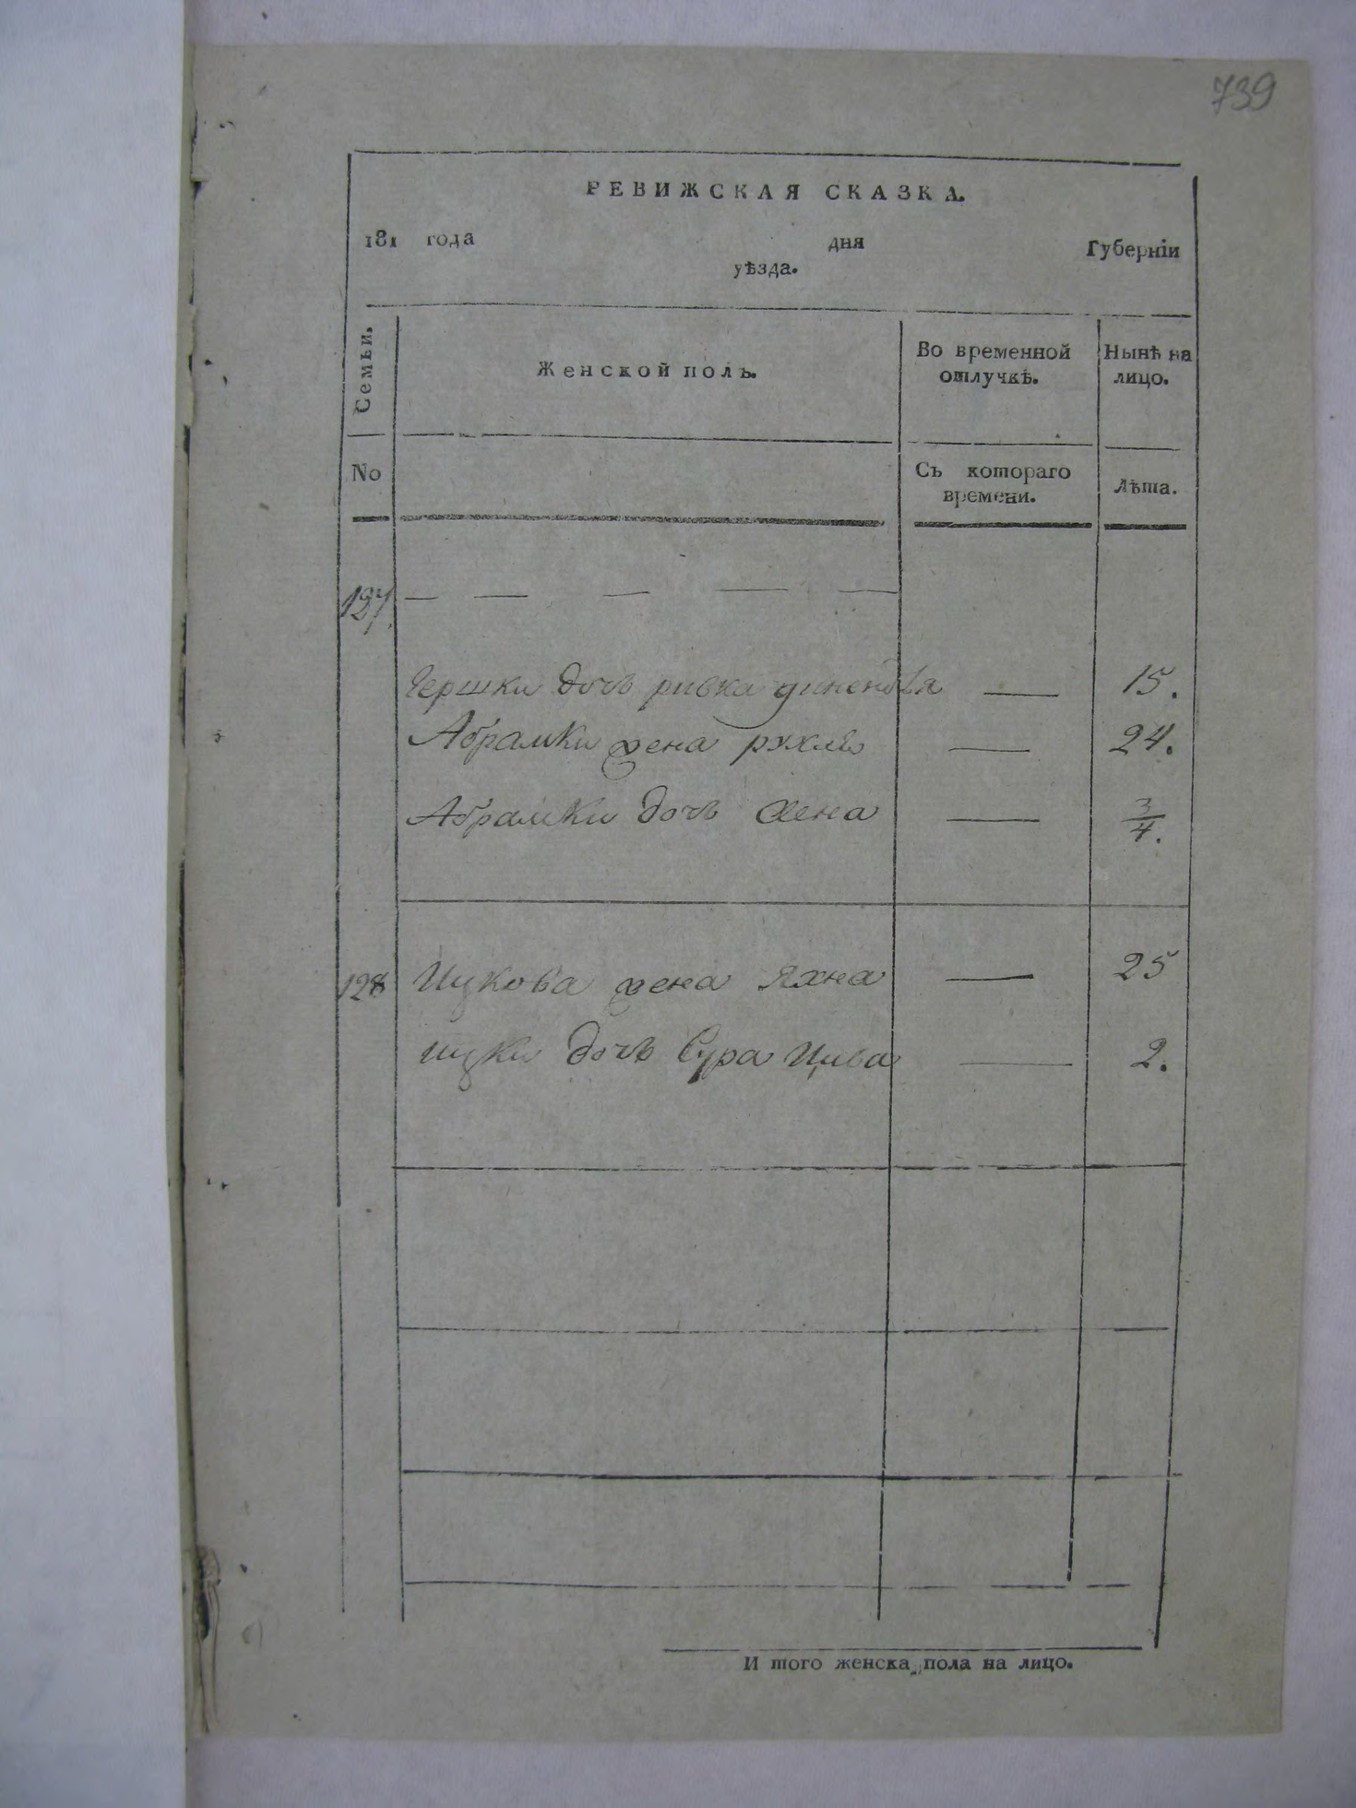 739
РЕВИЖСКАЯ СКАЗКА.
181 года дня Губерніи
уѣзда.
Семьи.
Женской полъ.
Во временной отлучкѣ.
Нынѣ на лицо.
No
Съ котораго времени.
Лѣта.
127. — — — — —
Гершки дочь ривка — 15.
Абрамки жена рухля — 24.
Абрамки дочь Хена — 3/4.
128 Ицкова жена Яхна — 25
ицки дочь Сура Цива — 2.
И того женска пола на лицо.